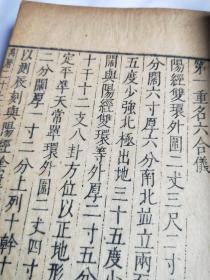 第一重名六合儀
陽經雙環外圍二丈三尺二寸
分闊六寸厚六分南北並立兩
五度少強北極出地三十五度
闊與陽經雙環等外厚二寸五分
十干十二支八卦方位以正地形
定平準天常單環外圍二丈四寸
二分闊厚一寸二分上列十幹十
以測辰刻與陽經